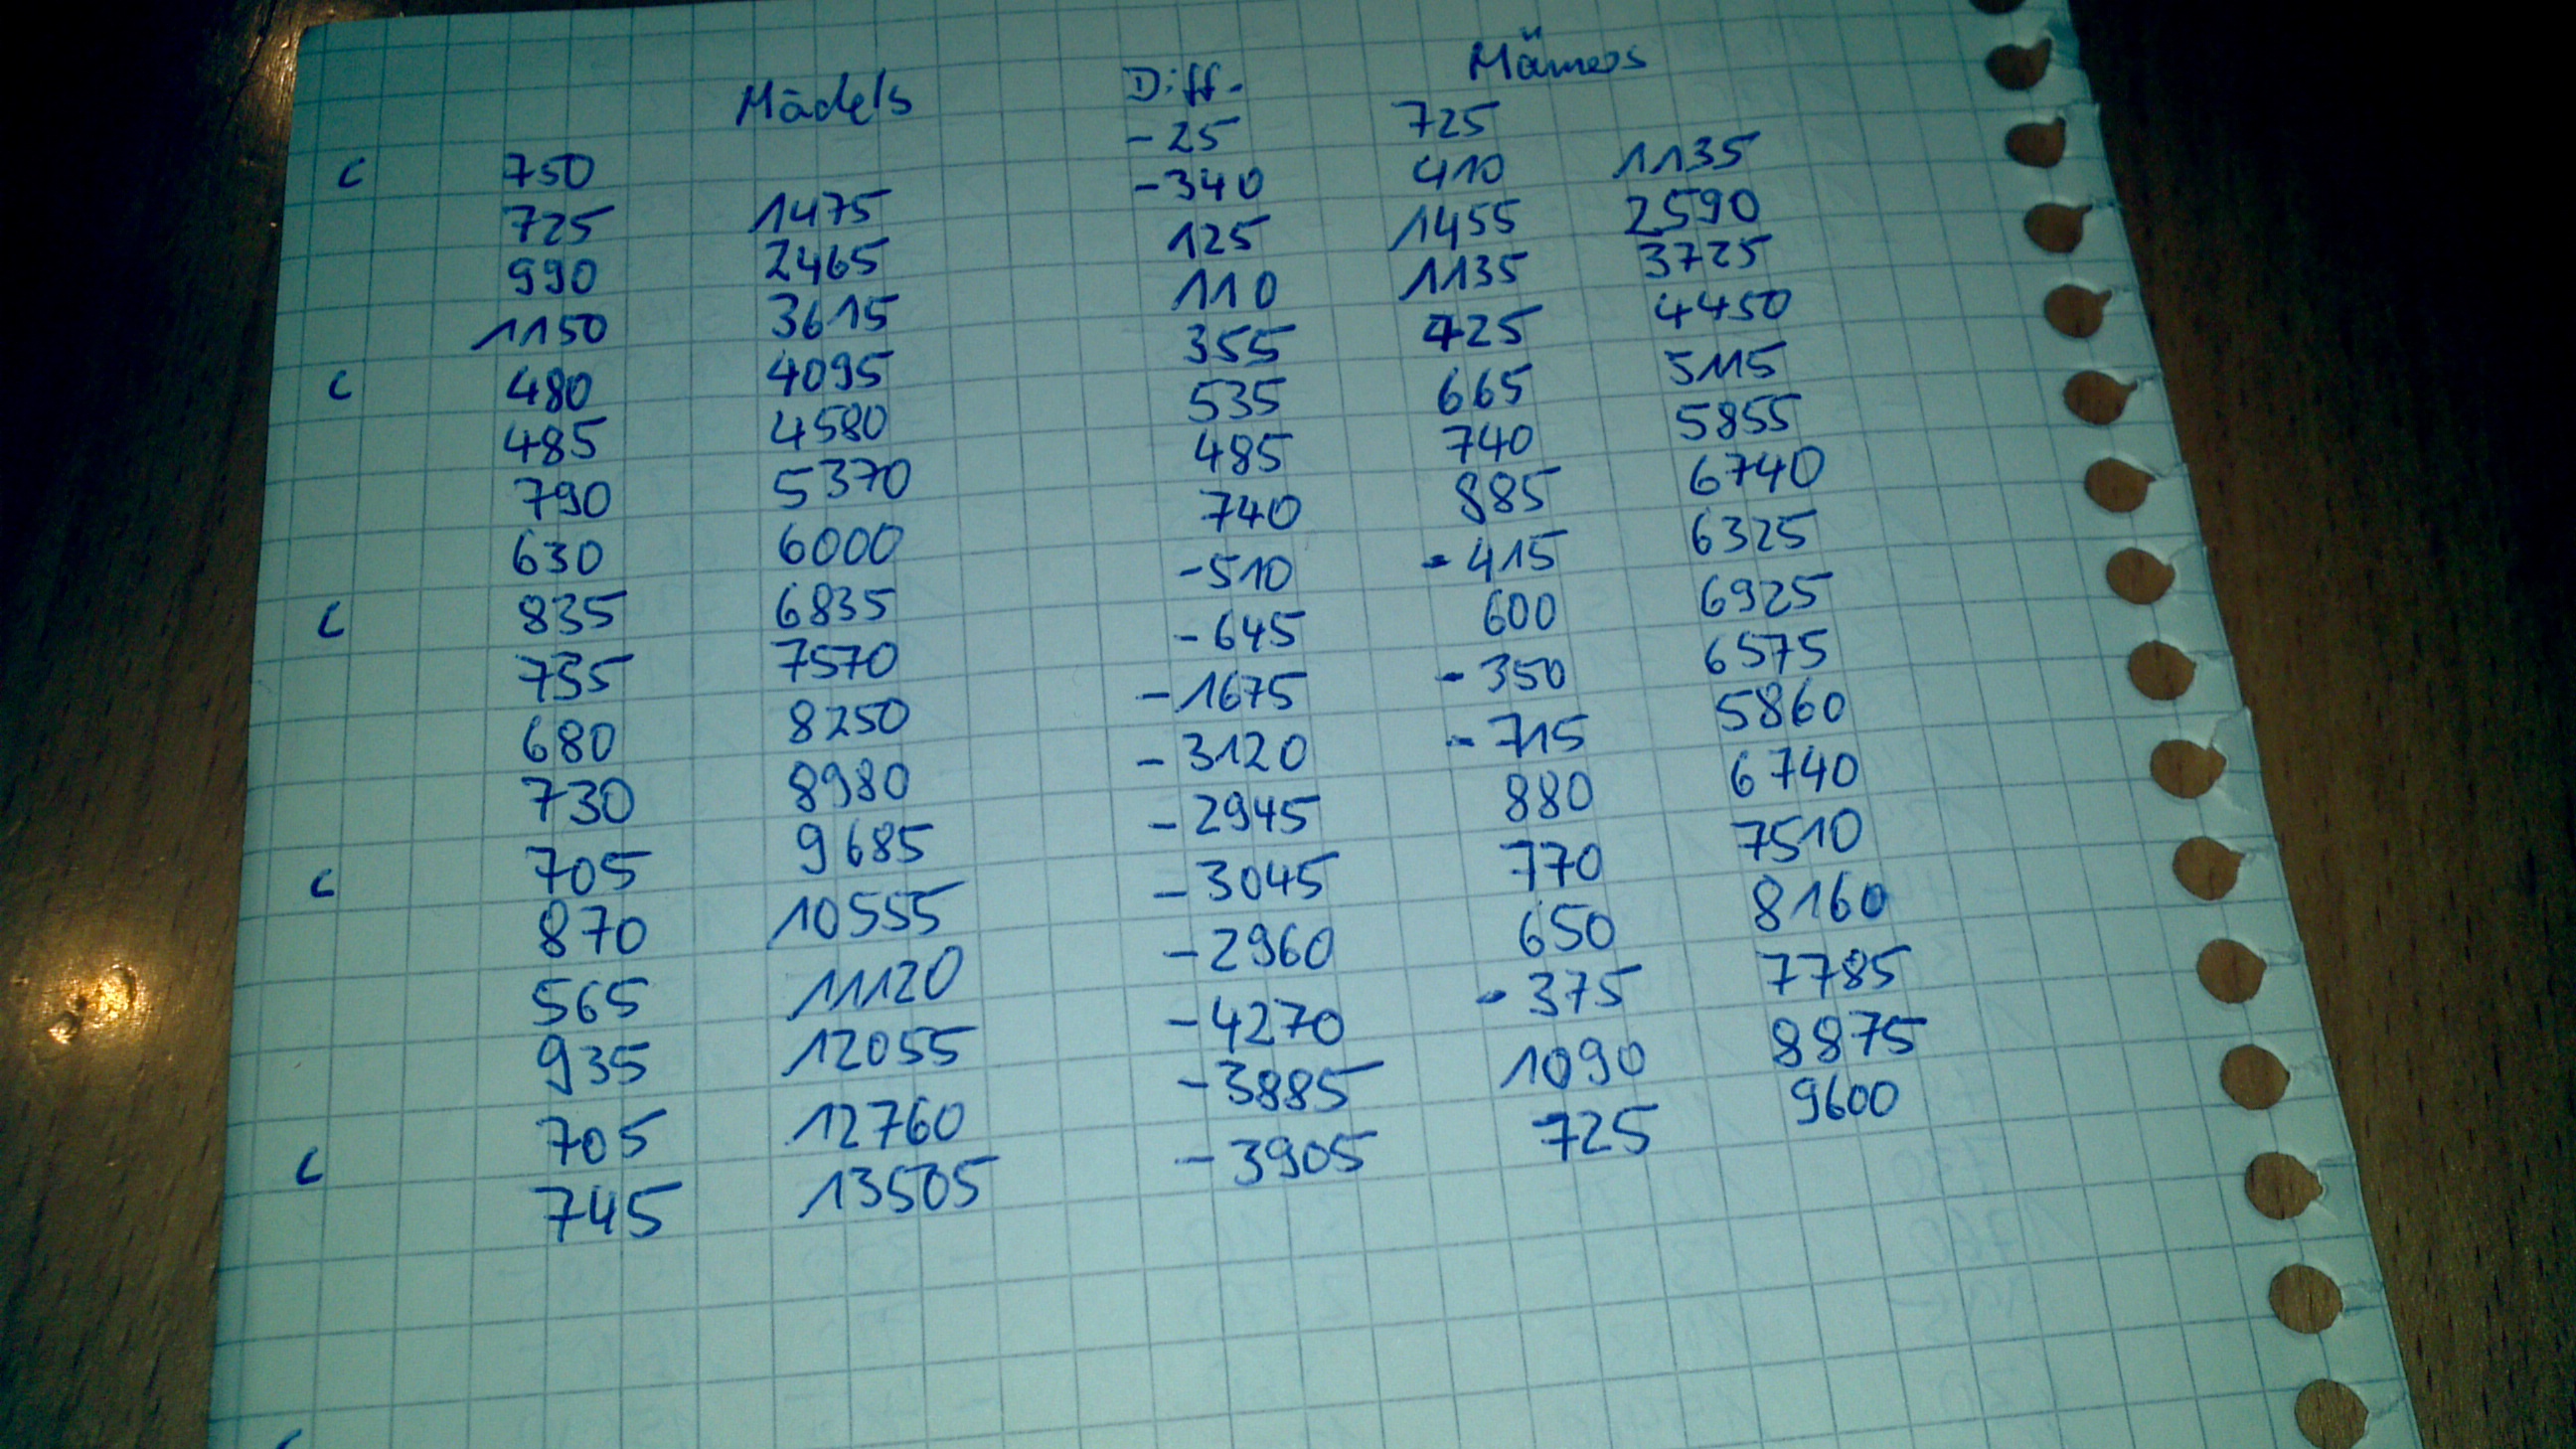 Mädels Diff. Männers
c 750 -25 725
725 1475 -340 410 1135
990 2465 125 1455 2590
1150 3615 110 1135 3725
c 480 4095 355 725 4450
485 4580 535 665 5115
790 5370 485 740 5855
630 6000 740 885 6740
c 835 6835 -510 -415 6325
735 7570 -645 600 6925
680 8250 -1675 -350 6575
730 8980 -3120 -715 5860
c 705 9685 -2945 880 6740
870 10555 -3045 770 7510
565 11120 -2960 650 8160
935 12055 -4270 -375 7785
c 705 12760 -3885 1090 8875
745 13505 -3905 725 9600